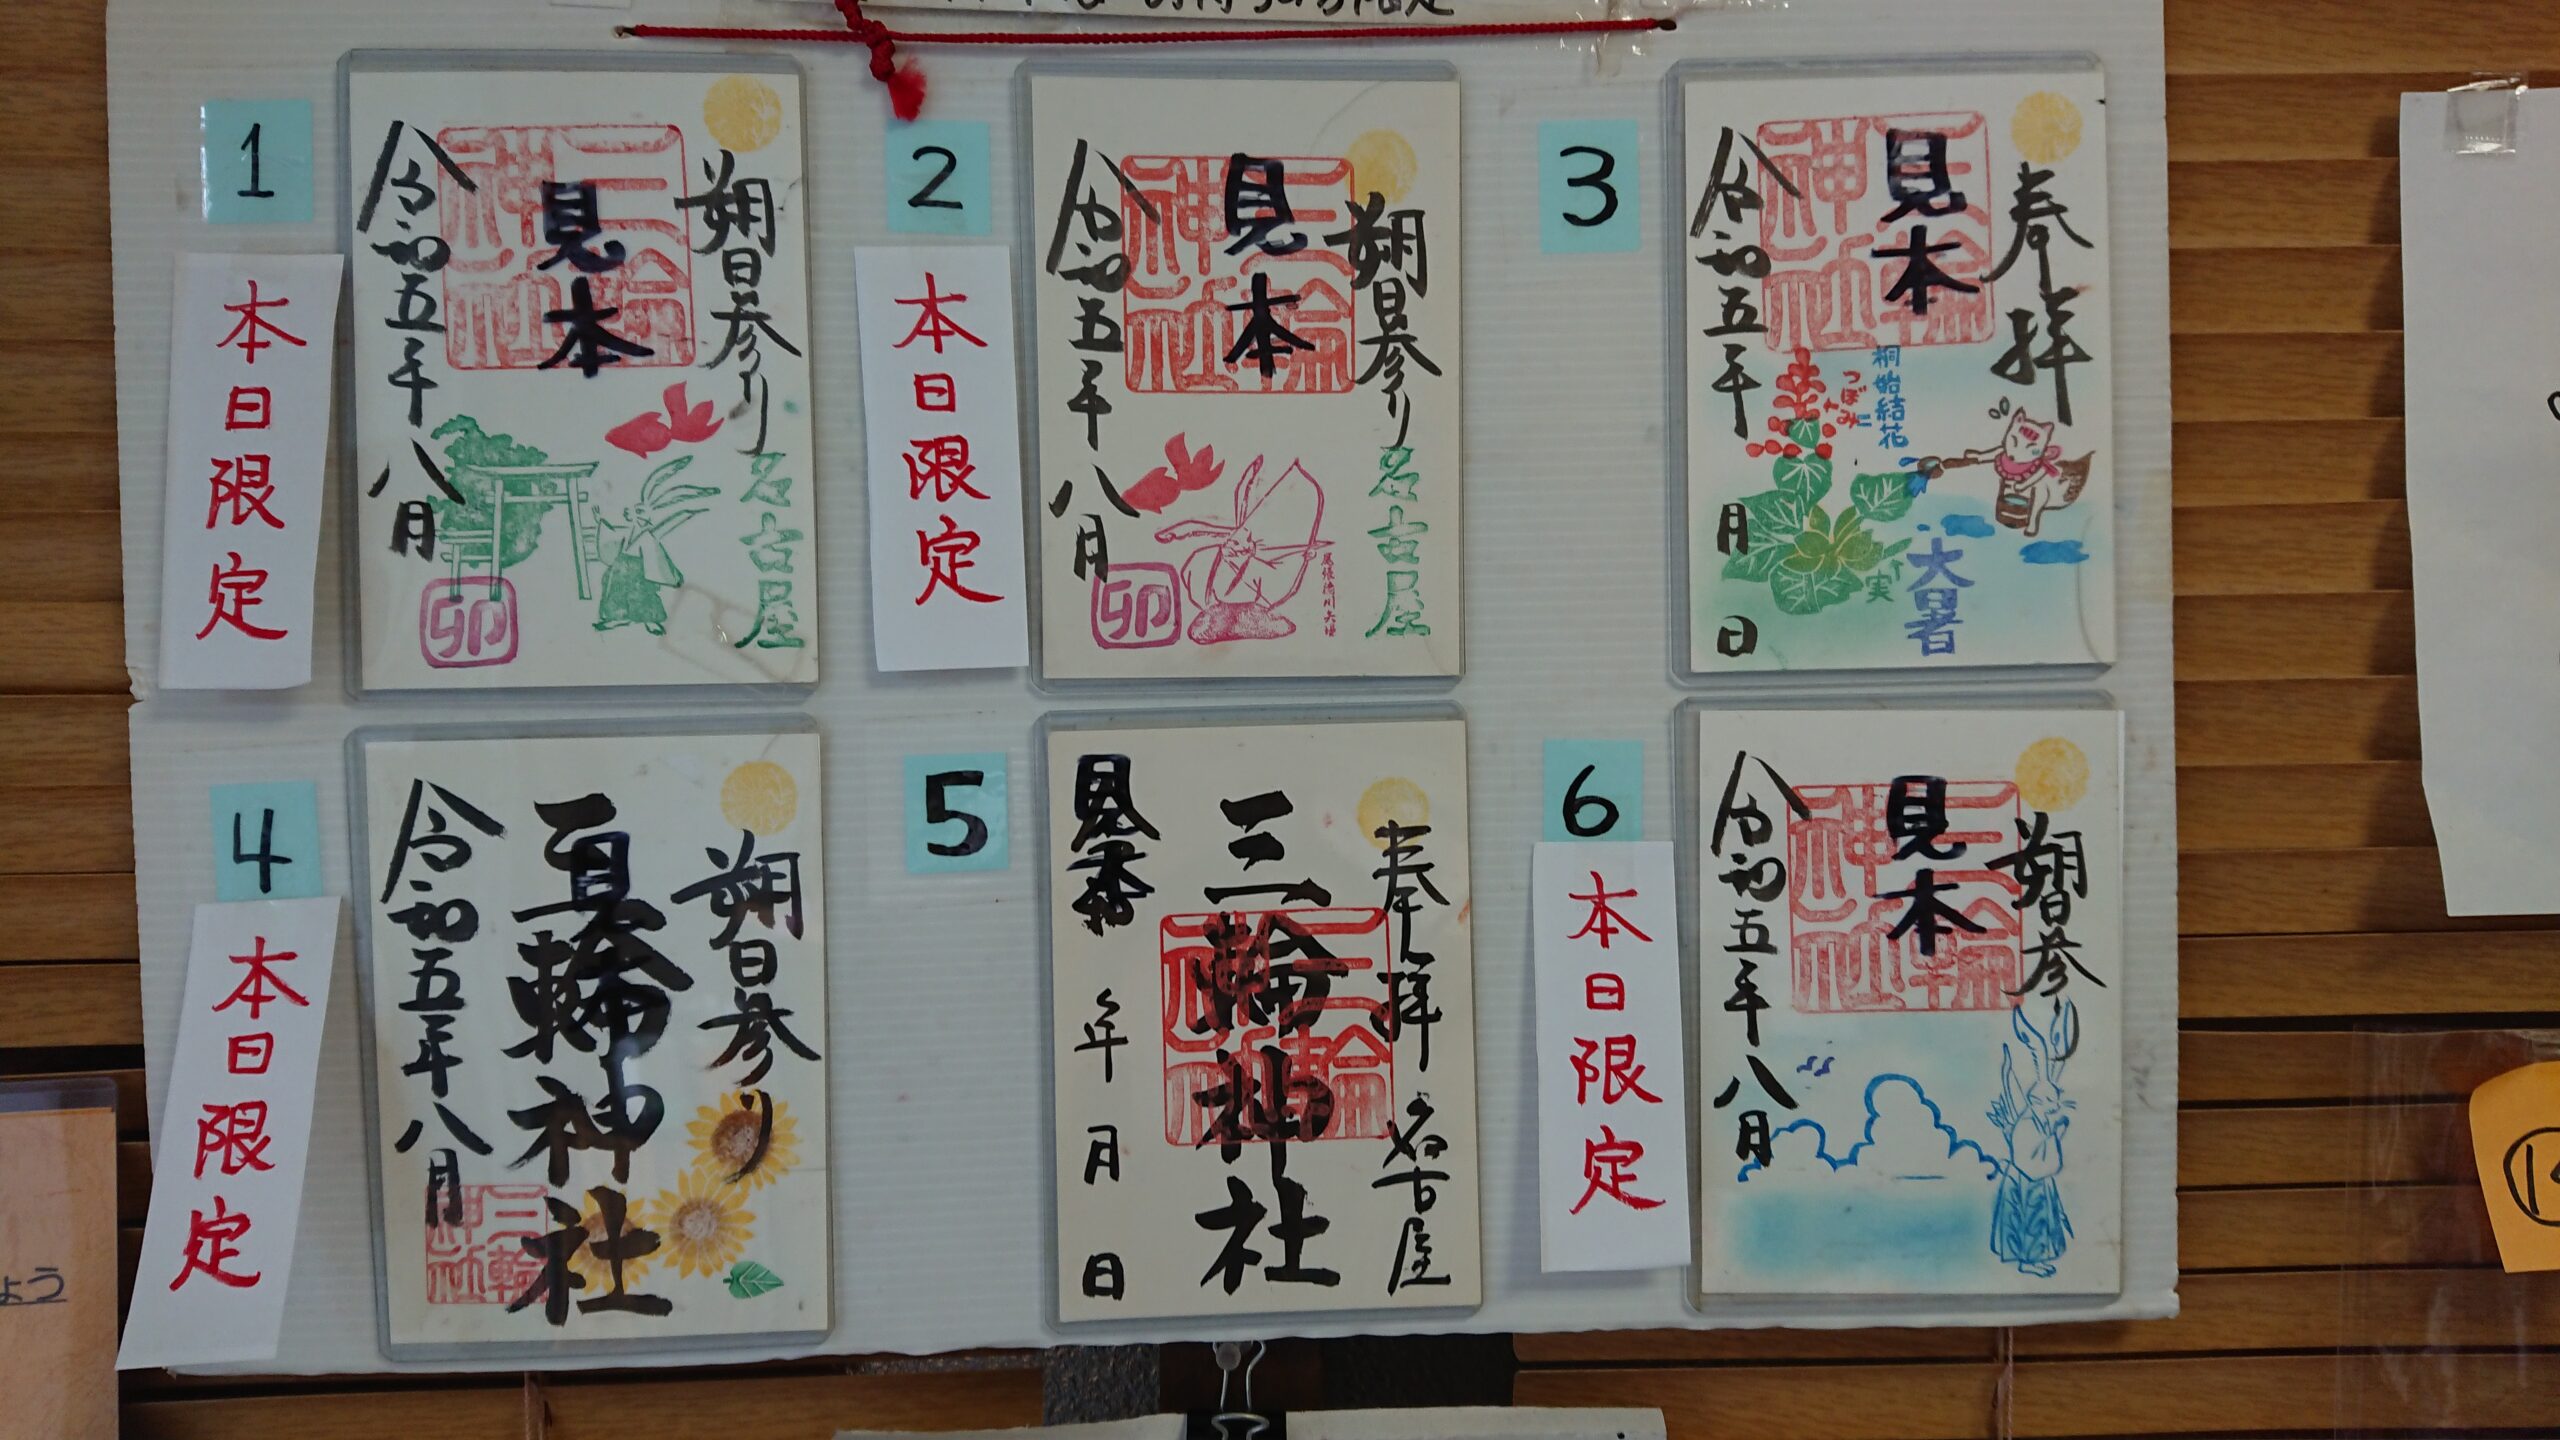 1
本日限定
朔日参り
名古屋
三輪神社
見本
令和五年八月
卯
2
本日限定
朔日参り
名古屋
三輪神社
見本
令和五年八月
尾張徳川矢場
卯
3
奉拝
三輪神社
見本
桐始結花
つぼみ
実
大暑
令和五年
月
日
4
本日限定
朔日参り
三輪神社
見本
三輪神社
令和五年八月
5
奉拝
名古屋
三輪神社
三輪神社
見本
令和
年
月
日
6
本日限定
朔日参り
三輪神社
見本
令和五年八月
ょう